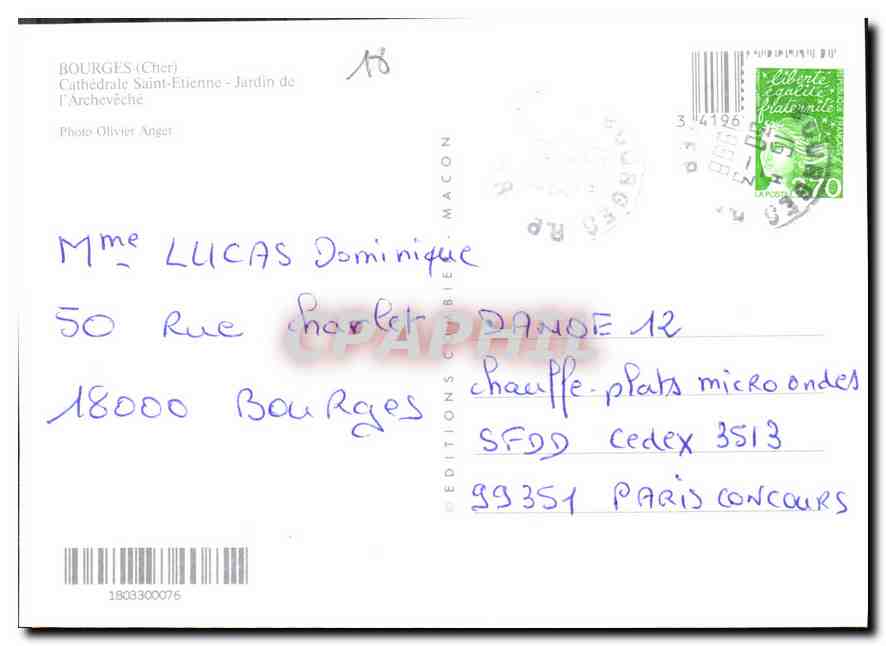 BOURGES (Cher)
Cathédrale Saint-Etienne - Jardin de
l'Archevêché
Photo Olivier Anger
18
3 4196
liberté
égalité
fraternité
LA POSTE
2,70
BOURGES R.P
BOURGES R.P
Mme LUCAS Dominique
50 Rue Charlet
18000 Bourges
DANOE 12
chauffe-plats micro ondes
SFDD Cedex 3513
99351 PARIS CONCOURS
© EDITIONS COMBIER MACON
CPAPHIL
1803300076